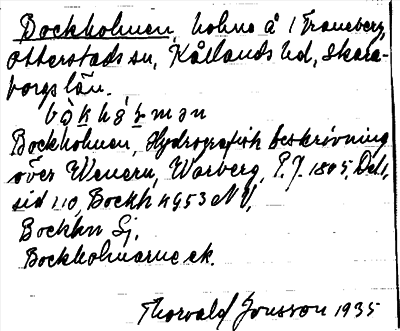 Bockholmen, holme å 1 Traneberg,
Otterstads sn, Kållands hd, Skara-
borgs län.
Bockholmen, Hydrografisk beskrivning
över Wenern, Warberg, P. J. 1805, Del 1,
sid 210, Bockh 4953 NV,
Bockhn Sj.
Bockholmarne ek.
Thorvald Jonsson 1935